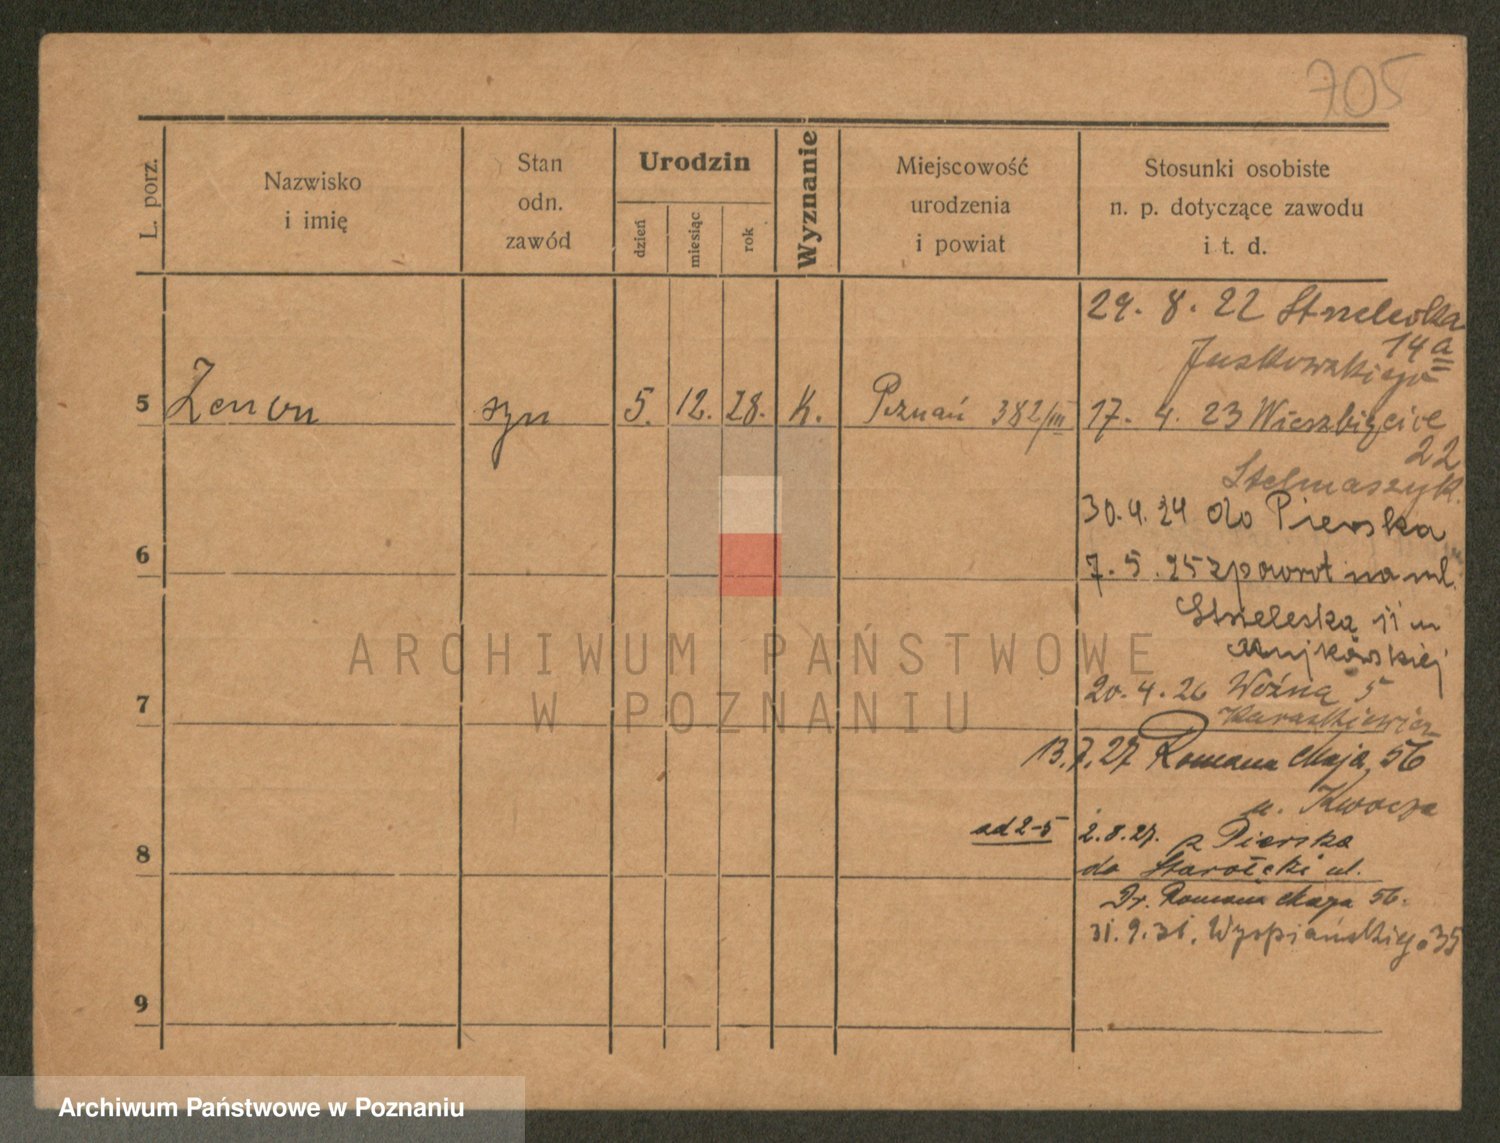 705
L. porz.
Nazwisko
i imię
Stan
odn.
zawód
Urodzin
dzień
miesiąc
rok
Wyznanie
Miejscowość
urodzenia
i powiat
Stosunki osobiste
n. p. dotyczące zawodu
i t. d.
29. 8. 22 Strzelecka
14a
5 Zenon syn 5. 12. 28. K. Poznań 382/III
17. 4. 23 Wierzbięcice
22
Stelmaszyk.
30.4.24 do Pierska
6
7. 5. 25 z powrot na ul.
Strzelecka 11 u
20.4.26 Woźna 5
7
13.7.27 Romana Maja 56
u. Kwocza
ad 2-5 2.8.27. z Pierska
8
do Starołęki ul.
Dr. Romana Maya 56.
31.9.31. Wyspiańskiego 35
9
ARCHIWUM PAŃSTWOWE
W POZNANIU
Archiwum Państwowe w Poznaniu